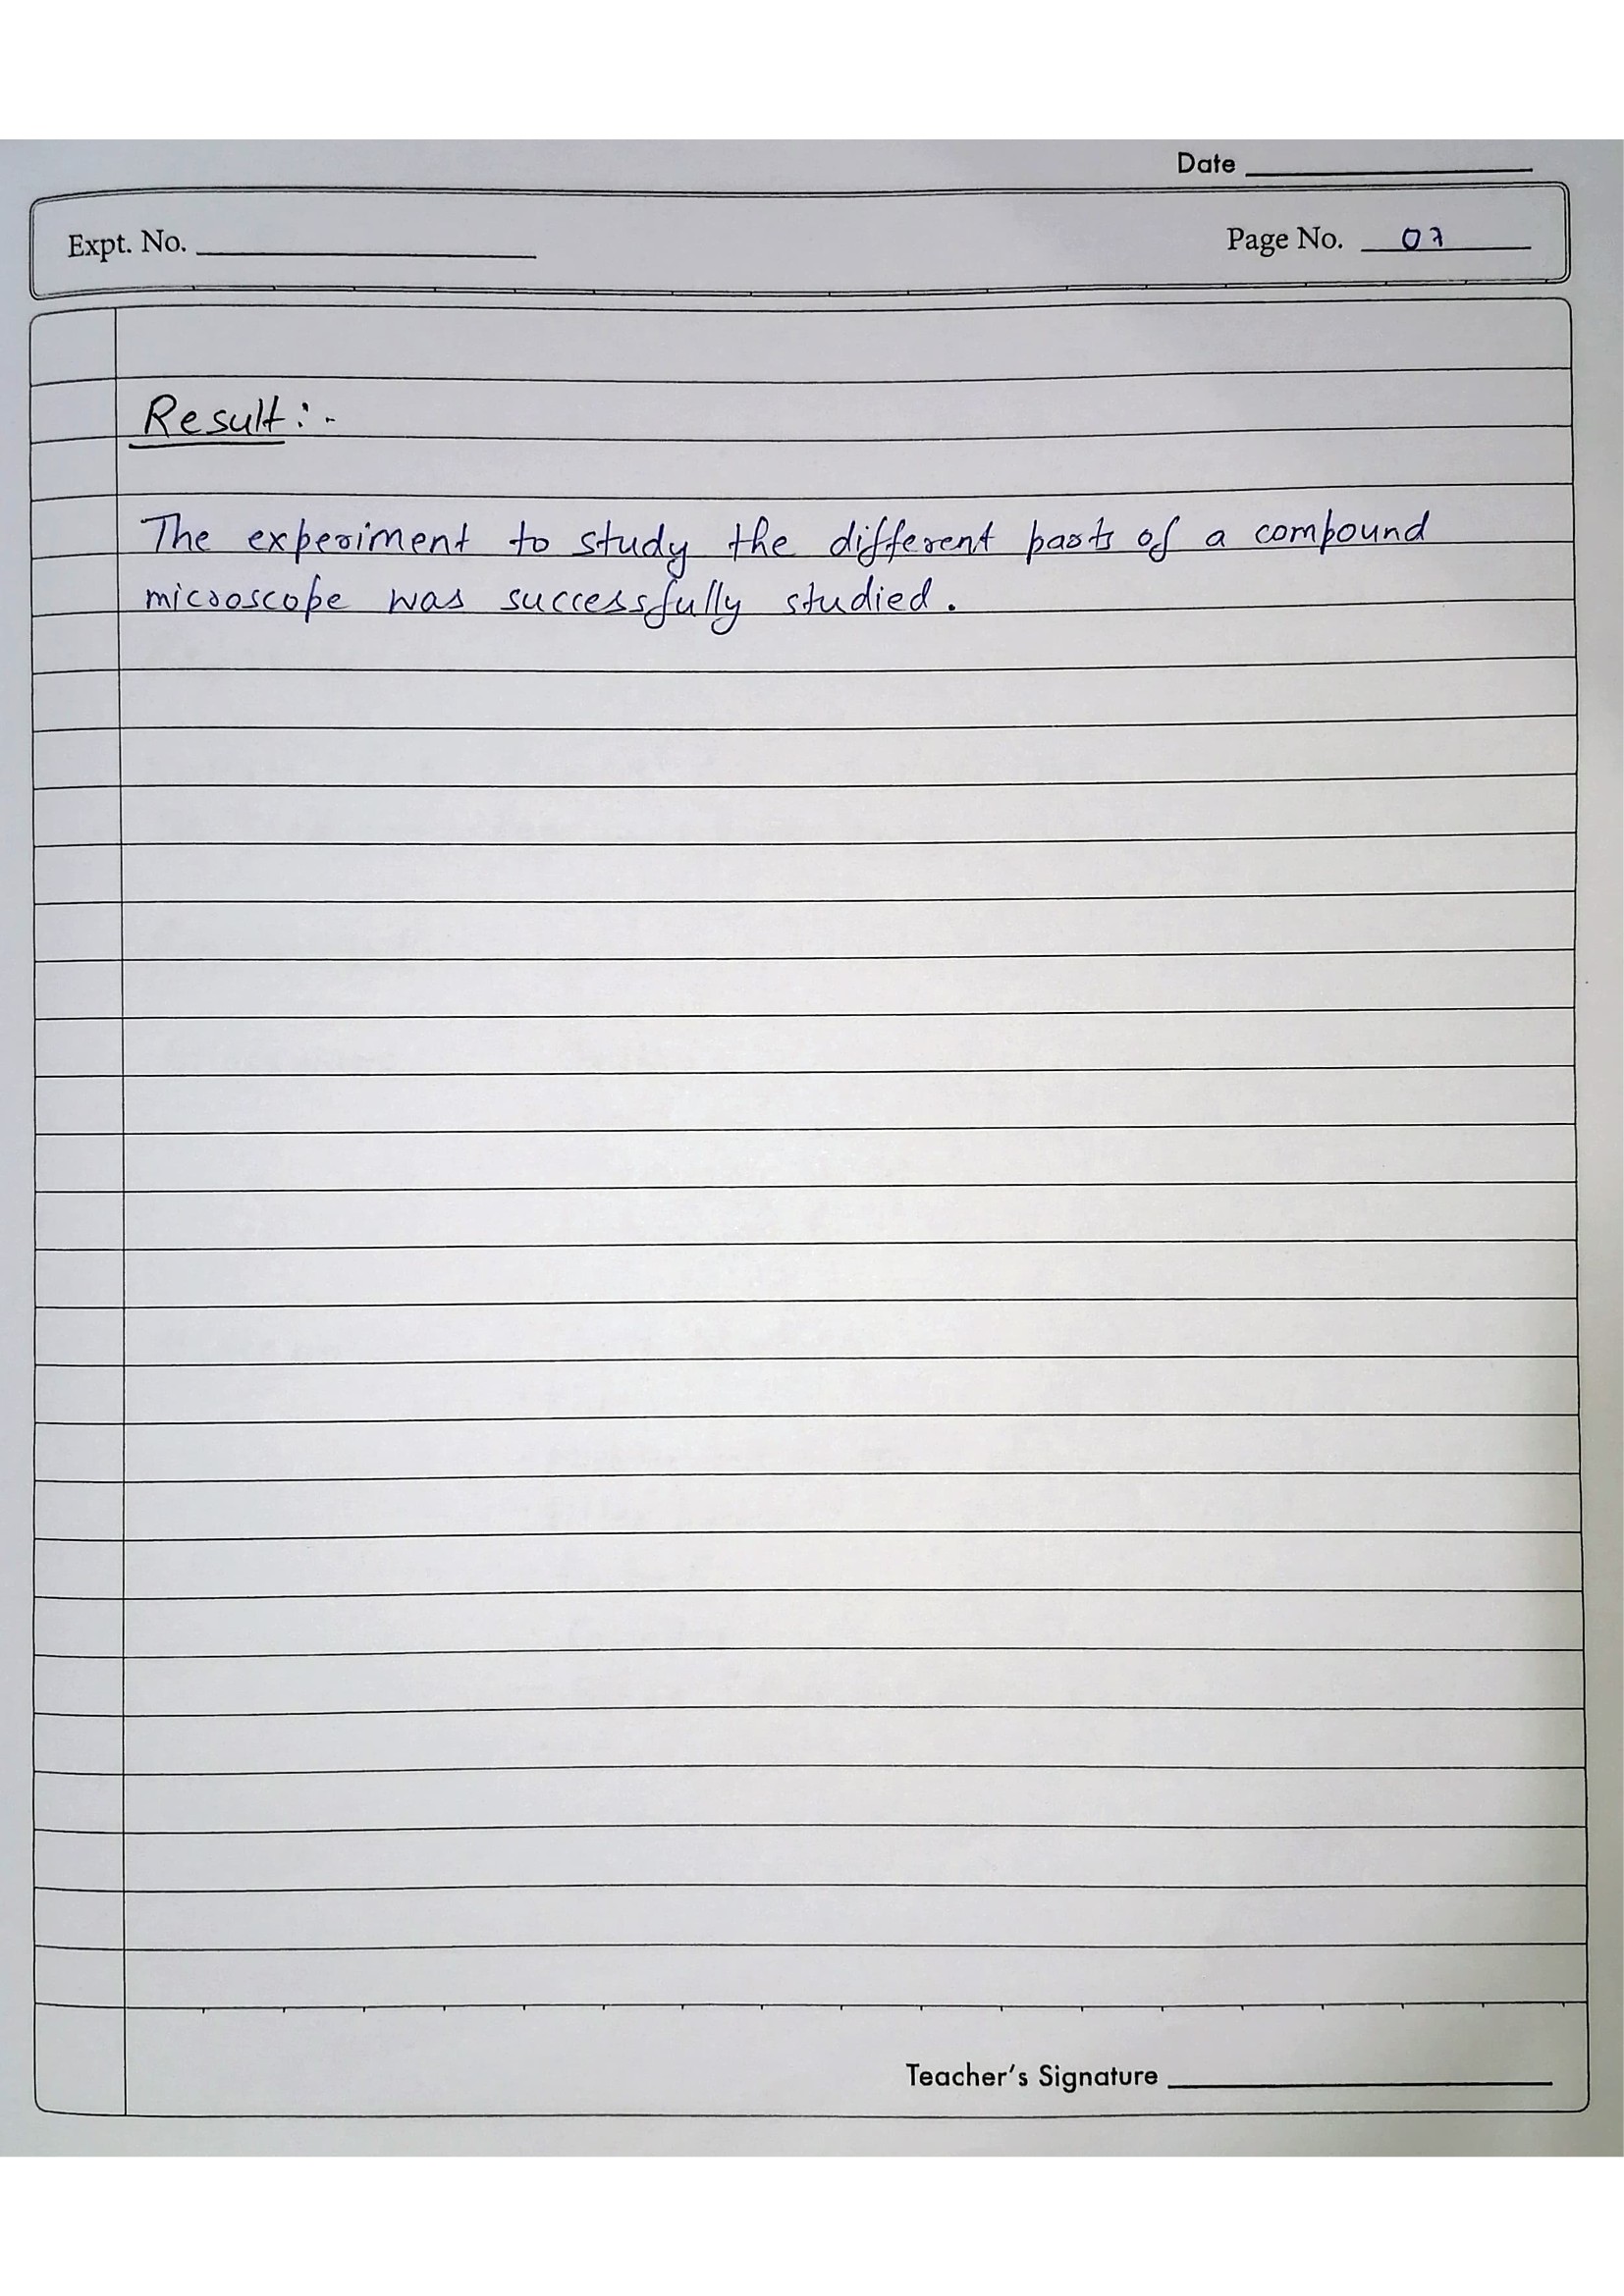 Date
Expt. No.
Page No. 07
Result :-
The experiment to study the different parts of a compound
microscope was successfully studied.
Teacher's Signature